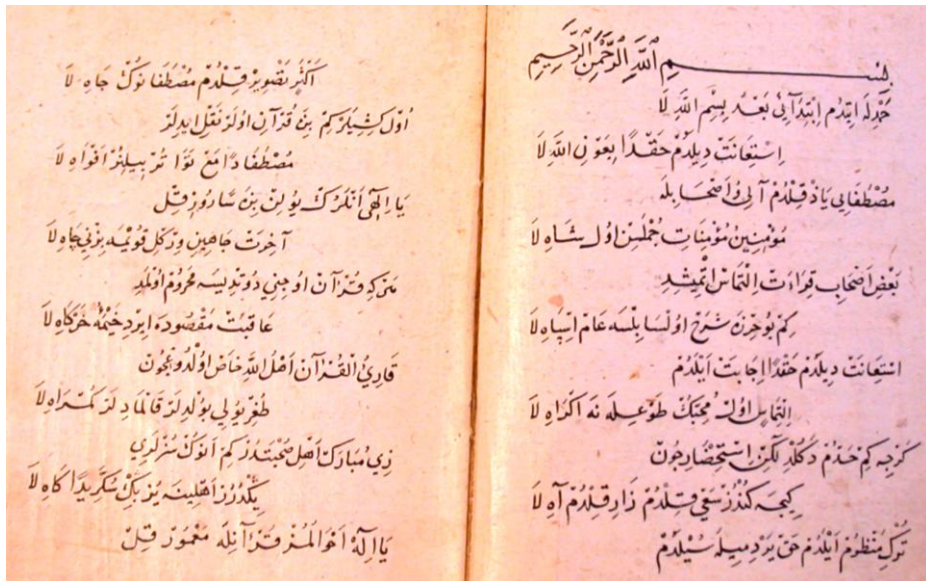 بِسْمِ اللَّهِ الرَّحْمَنِ الرَّحِيمِ
حَمْدِلَه ايتدم ابتدائى بَعْدُ بِسْمِ اللَّهِ لَا
اِسْتِعَانَتْ دِيلَدُمْ حَقْدَا بِعَوْنِ اللَّهِ لَا
مُصْطَفَايى يَادْ قِلْدُمْ آلى وُ اَصْحَابِلَه
مُؤْمِنِينْ مُؤْمِنَاتِ جُمْلَسِنْ اول شَاهِ لَا
بَعْضِ اَصْحَابِ قِرَاءَتْ اِلْتِمَاسْ اتْمِشِدِ
كِمْ بُو حِرْزَنْ شَرْحْ اولسَا بِلْسَه عَامْ اِسْپَاهِ لَا
اسْتِعَانَتْ دِيلَدُمْ حَقْدَا اِجَابَتْ اَيْلَدُمْ
اِلْتِمَاسِ اولْ مُحِبّكْ طَوْعِلَه نَه اكْرَاهِ لَا
كَرْجِه كِمْ حَدّمْ دَكُلْدِ لكِنْ اسْتِحْضَارِجُونْ
كِيجَه كُنْدُزْ سَعْى قِلْدُمْ زَادِ قِلْدُمْ آهِ لَا
تُرْكِ مَنْظُومْ اَيْلَدُمْ حَقْ يَرْدِمِيلَه سُيْلَدُمْ
اَكْثَرِ تَصْوِيرْ قِلْدُمْ مُصْطَفَا نوُكْ جَاهِ لَا
اُوّل كِشِيلَرْ كِمْ بِنْ قُرْآنِ اولَرْ نَقْلِ ايدلَرْ
مُصْطَفَادَا مَعْ نَوَّا تُرْ بِيلِنُرْ اَفْوَاهِ لَا
يَا اِلَهِى اَنْلَرُكْ يُولِنْ بِنُ سَادُوزِ قِلْ
آخِرَتْ جَاهِينِ وِرْكِلْ قَوْيْمَه بِزْنى چَاهِ لَا
مَنْ كِه قُرْآنْ اوجنِى دُوتْدِيسَه مَحْرُومْ اولْمَدِ
عَاقِبَتْ مَقْصُودَه ايرْدِ خَيْمُهْ خَرْكَاهِ لَا
قَارِئُ الْقُرْآنْ اَهْلُ اللَّهِ خَاصْ اولْدُوغِجُونْ
ظَفْرِ يولى بولْدِلَرْ قَالْمَادِلَرْ كَمْرَاهِ لَا
زِي مُبَارَكْ اَهْلِ صُحْبَتْدُرْ كِمْ اَنُوكْ سُرْلَرِي
يَكْدُرُرْ اَهْلِينَه يُزْ بِكْ شُكْرِيدَا كَاهِ لَا
يَا اِلَهْ اَحْوَالُمُزْ قُرْآنِلَه مَعْمُورْ قِلْ